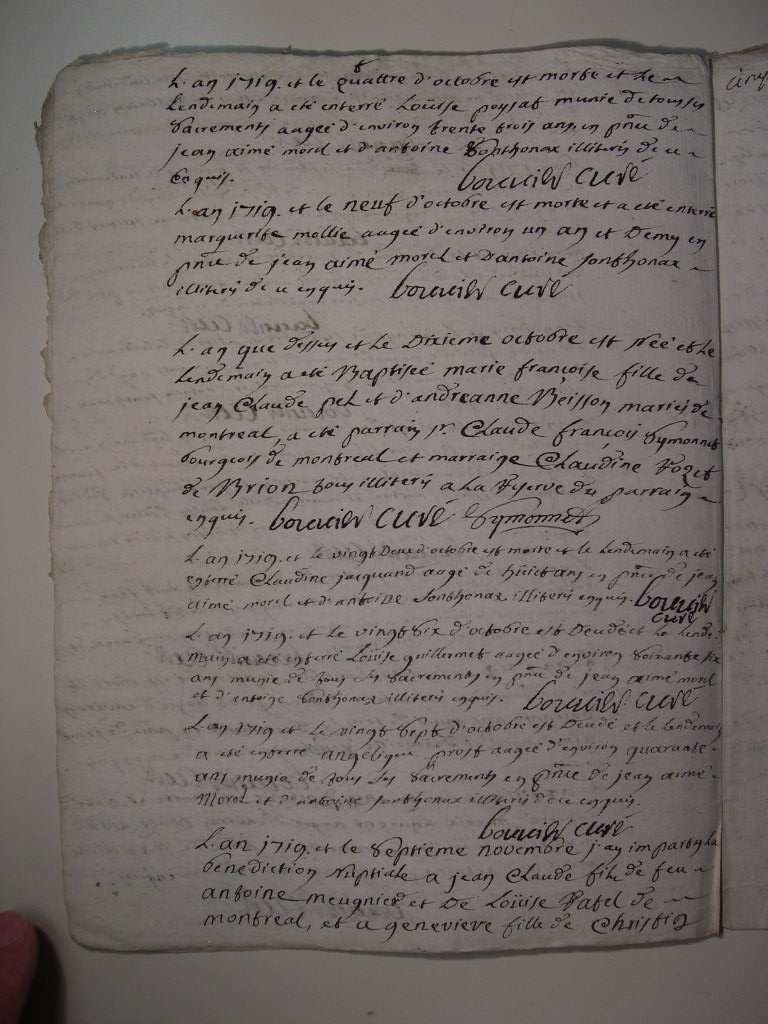 L'an 1719. et le quattre d'octobre est morte et le
lendemain a eté enterré Loüise poysat munie de tous ses
sacrements aageé d'environ trente trois ans, en pnce de
jean aimé morel et d'antoine Sonthonax illiterés de ce
enquis. bouveiller Curé
L'an 1719. et le neuf d'octobre est morte et a eté enterré
marguerite mollie aageé d'environ un an et Demy en
pnce de jean aimé morel et d'antoine sonthonax
illiterés de ce enquis. Curé
L'an que dessus et le Dixieme octobre est Neé et le
lendemain a eté Baptiseé marie françoise fille de
jean Claude pel et d'andreanne Boisson mariés de
montreal, a eté parrain sr. Claude françois Symonnet
bourgeois de montreal et marraine Claudine
de Brion tous illiterés a la reserve du parrain
enquis. Curé Symonnet
L'an 1719. et le vingt Deux d'octobre est morte et le lendemain a eté
enterré Claudine jacquand aagé de huict ans en pnce de jean
aimé morel et d'antoine sonthonax illiterés enquis.
Curé
L'an 1719. et le vingt six d'octobre est Decedé et le lende-
main a eté enterré Loüise guillermet aageé d'environ soixante six
ans munie de tous ses sacrements en pnce de jean aimé morel
et d'antoine sonthonax illiterés enquis. Curé
L'an 1719 et le vingt sept d'octobre est Decedé et le lendemain
a eté enterré angelique prost aageé d'environ quarante
ans munie de tous ses sacrements en pnce de jean aimé
Morel et d'antoine sonthonax illiterés d'ece enquis.
Curé
L'an 1719. et le septieme novembre j'ay imparty la
benediction nuptiale a jean Claude fils de feu
antoine meugnier et De Loüise de
montreal, et a genevieve fille de Christin